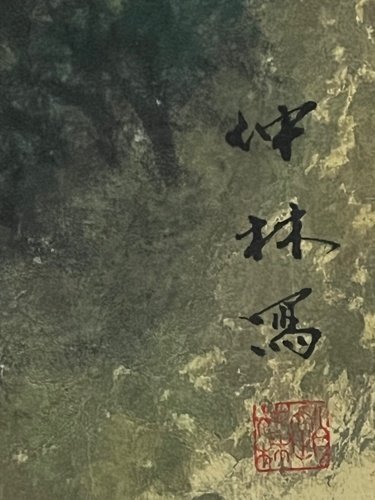 仲林寫